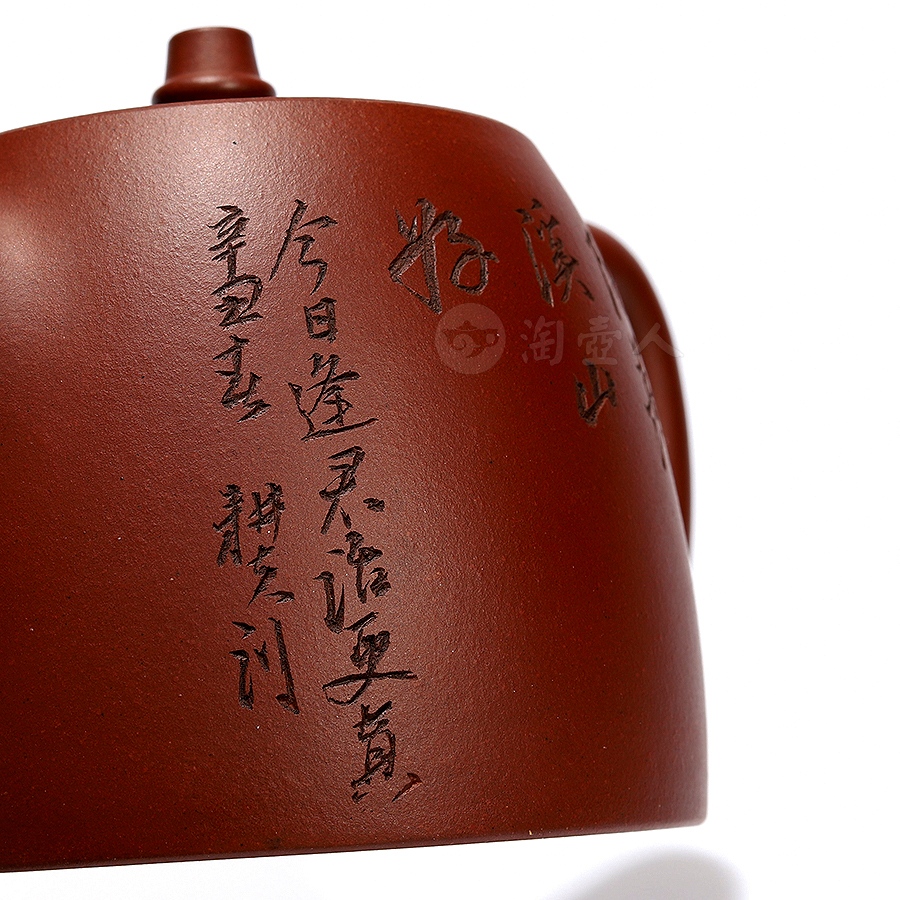 溪山
好
今日逢君治更真
辛丑春 耕夫刻
淘壶人